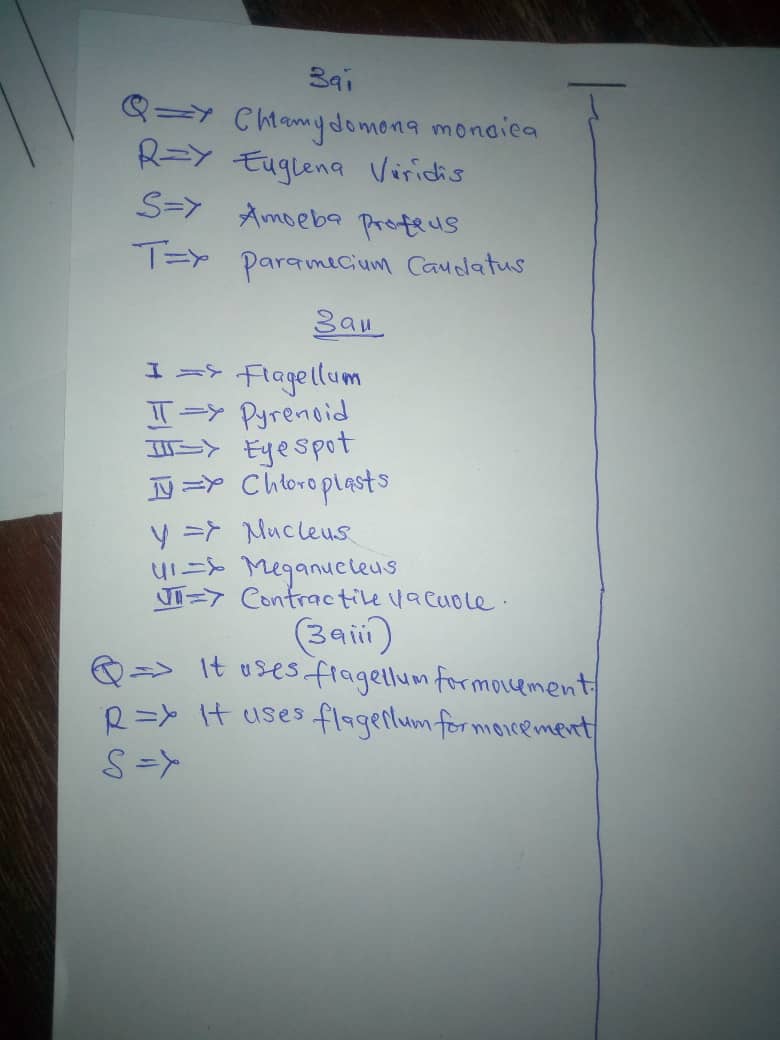 3ai
Q => Chlamydomona monoica
R => Euglena Viridis
S => Amoeba proteus
T => paramecium Caudatus
3aii
I => Flagellum
II => Pyrenoid
III => Eyespot
IV => Chloroplasts
V => Nucleus
VI => Meganucleus
VII => Contractile vacuole.
(3aiii)
Q => It uses flagellum for movement.
R => It uses flagellum for movement
S =>